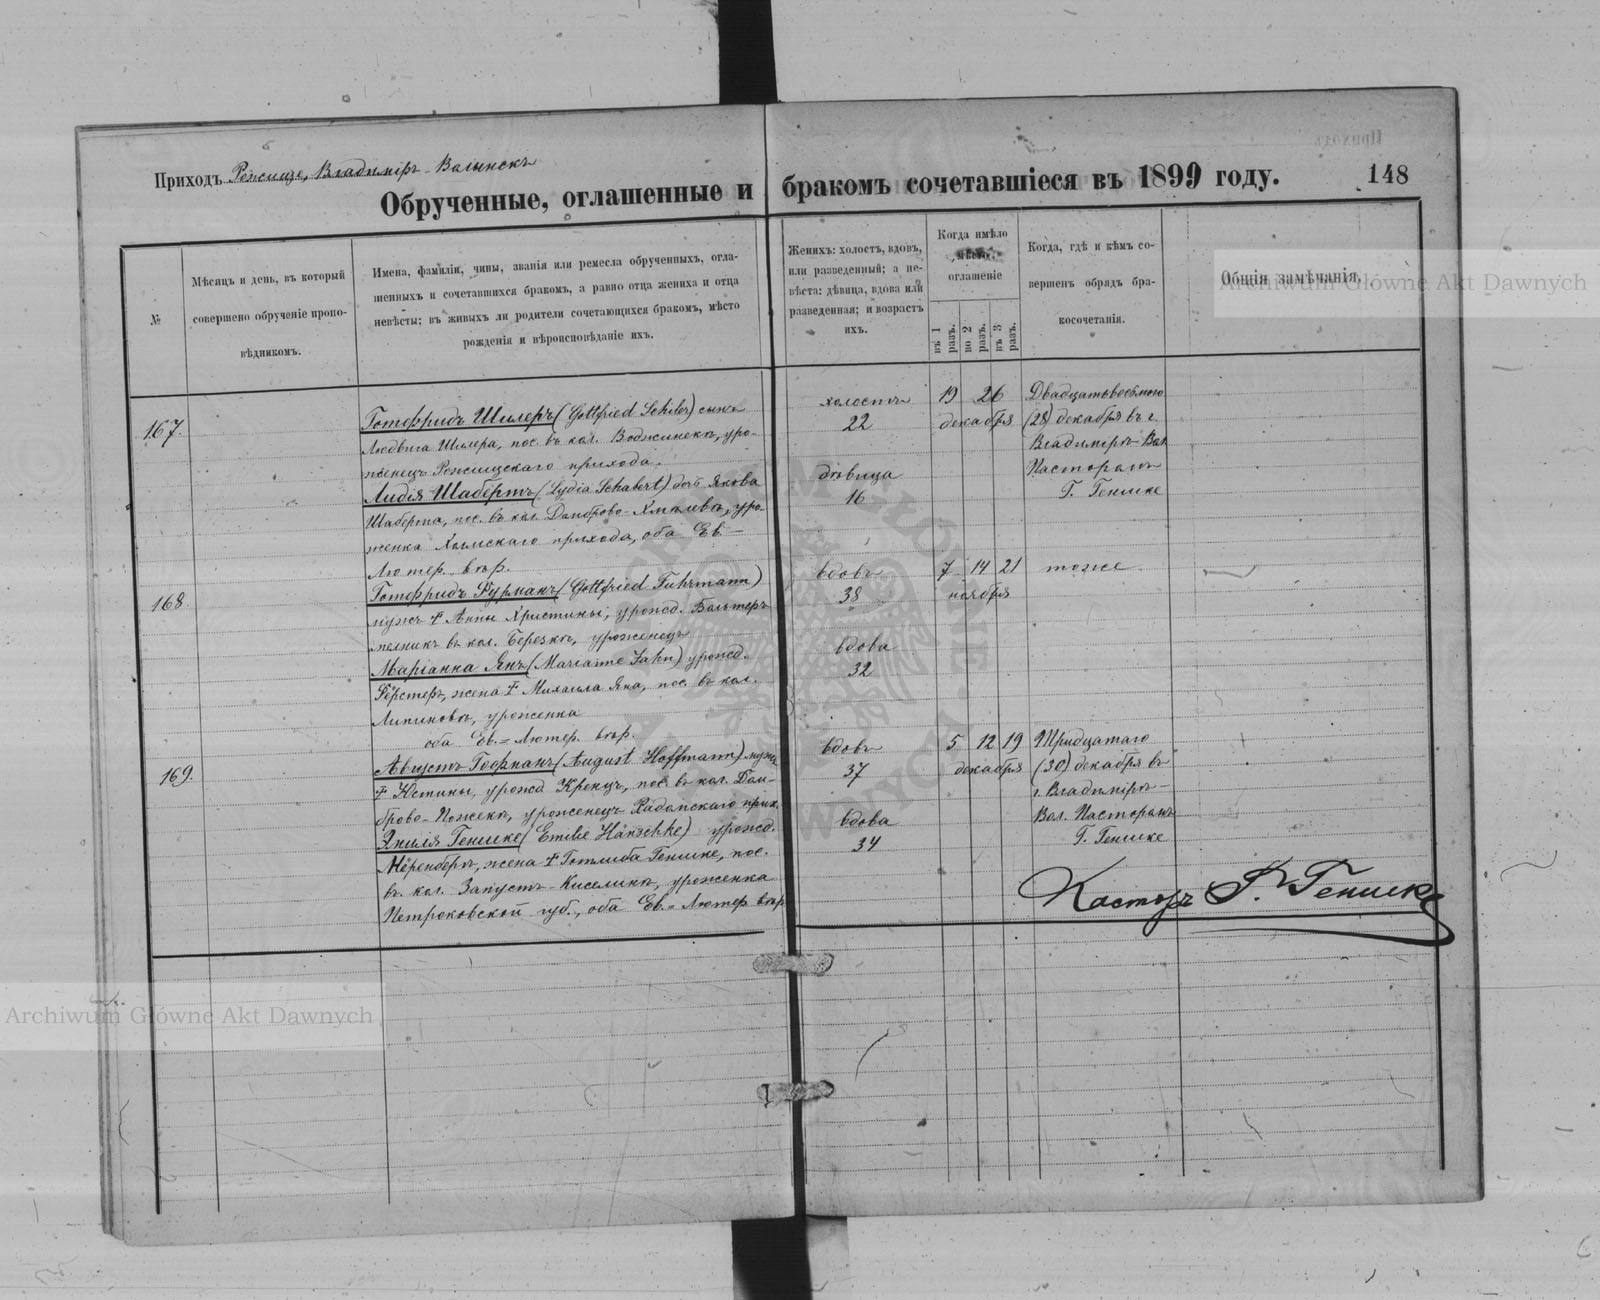 Приходъ Рожище, Владиміръ-Волынскъ
Обрученные, оглашенные и бракомъ сочетавшіеся въ 1899 году.
148
№
Мѣсяцъ и день, въ который
совершено обрученіе пропо-
вѣдникомъ.
Имена, фамиліи, чины, званія или ремесла обрученныхъ, огла-
шенныхъ и сочетавшихся бракомъ, а равно отца жениха и отца
невѣсты; въ живыхъ ли родители сочетающихся бракомъ, мѣсто
рожденія и вѣроисповѣданіе ихъ.
Женихъ: холостъ, вдовъ,
или разведенный; а не-
вѣста: дѣвица, вдова или
разведенная; и возрастъ
ихъ.
Когда имѣло
мѣсто
оглашеніе
въ 1 разъ.
во 2 разъ.
въ 3 разъ.
Когда, гдѣ и кѣмъ со-
вершенъ обрядъ бра-
косочетанія.
Общія замѣчанія.
Archiwum Główne Akt Dawnych
167.
Готфридъ Шилеръ (Gottfried Schiler) сынъ
Людвига Шилера, пос. въ кол. Воджинекъ, уро-
женецъ Рожищскаго прихода.
Лидія Шабертъ (Lydia Schabert) дочь Якова
Шаберта, пос. въ кол. Домброво-Хмѣлевкѣ, уро-
женка Холмскаго прихода, оба Ев.-
Лютер. вѣр.
холостъ
22
дѣвица
16
19 26
декабря
Двадцатьвосьмого
(28) декабря въ г.
Владиміръ-Вол.
Пасторомъ
Г. Генике
168.
Готфридъ Фурманъ (Gottfried Fuhrmann)
мужъ † Анны Христины, урожд. Вальтеръ
мельникъ въ кол. Березкѣ, уроженецъ
Маріанна Янъ (Marianne Jahn) урожд.
Фёрстеръ, жена † Михаила Яна, пос. въ кол.
Липиновкѣ, уроженка
оба Ев.-Лютер. вѣр.
вдовъ
38
вдова
32
7 14 21
ноября
тоже
169.
Августъ Гофманъ (August Hoffmann) мужъ
† Юстины, урожд. Кренцъ, пос. въ кол. Дом-
брово-Пожекъ, уроженецъ Радомскаго прих.
Эмилія Геншке (Emilie Hänschke) урожд.
Неренбергъ, жена † Готлиба Геншке, пос.
въ кол. Запустъ-Киселинъ, уроженка
Петроковской губ., оба Ев.-Лютер. вѣр.
вдовъ
37
вдова
34
5 12 19
декабря
Тридцатаго
(30) декабря въ
г. Владиміръ-
Вол. Пасторомъ
Г. Генике
Пасторъ Г. Генике
Archiwum Główne Akt Dawnych